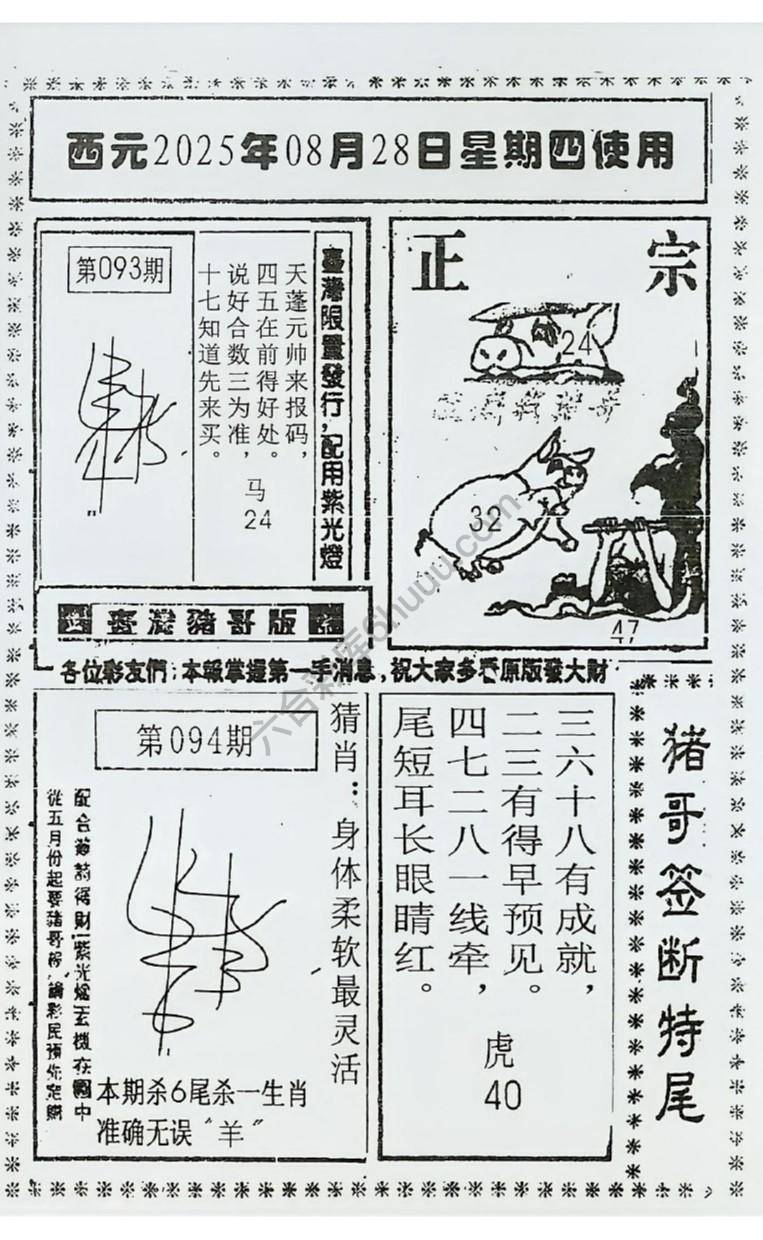 西元2025年08月28日星期四使用
第093期
臺灣限量發行,配用紫光燈
天蓬元帅来报码，
四五在前得好处。
说好合数三为准，
十七知道先来买。
马
24
正宗
24
32
47
臺灣豬哥版
各位彩友們:本報掌握第一手消息,祝大家多看原版發大財
第094期
猜肖：身体柔软最灵活
從五月份起要豬哥
本期杀6尾杀一生肖
准确无误“羊”
三六十八有成就，
二三有得早预见。
四七二八一线牵，
尾短耳长眼睛红。
虎
40
猪哥签断特尾
六合彩库6huuu.com